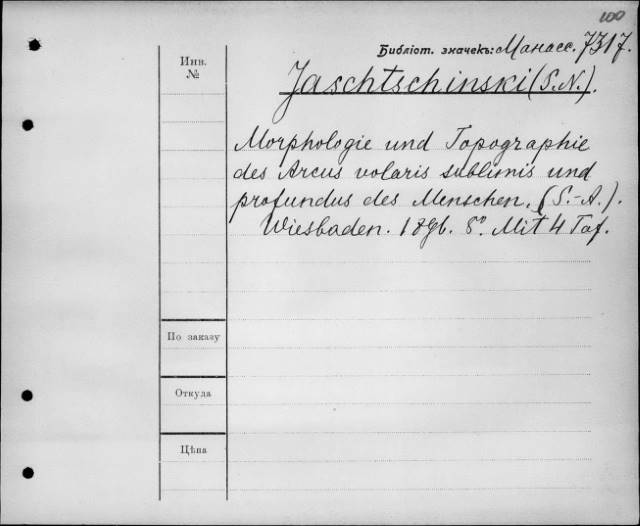 100
Библіот. значекъ: Манасс. 7317.
Инв.
№
Jaschtschinski (S. N.).
Morphologie und Topographie
des Arcus volaris sublimis und
profundus des Menschen. (S.-A.).
Wiesbaden. 1896. 8º. Mit 4 Taf.
По заказу
Откуда
Цѣна